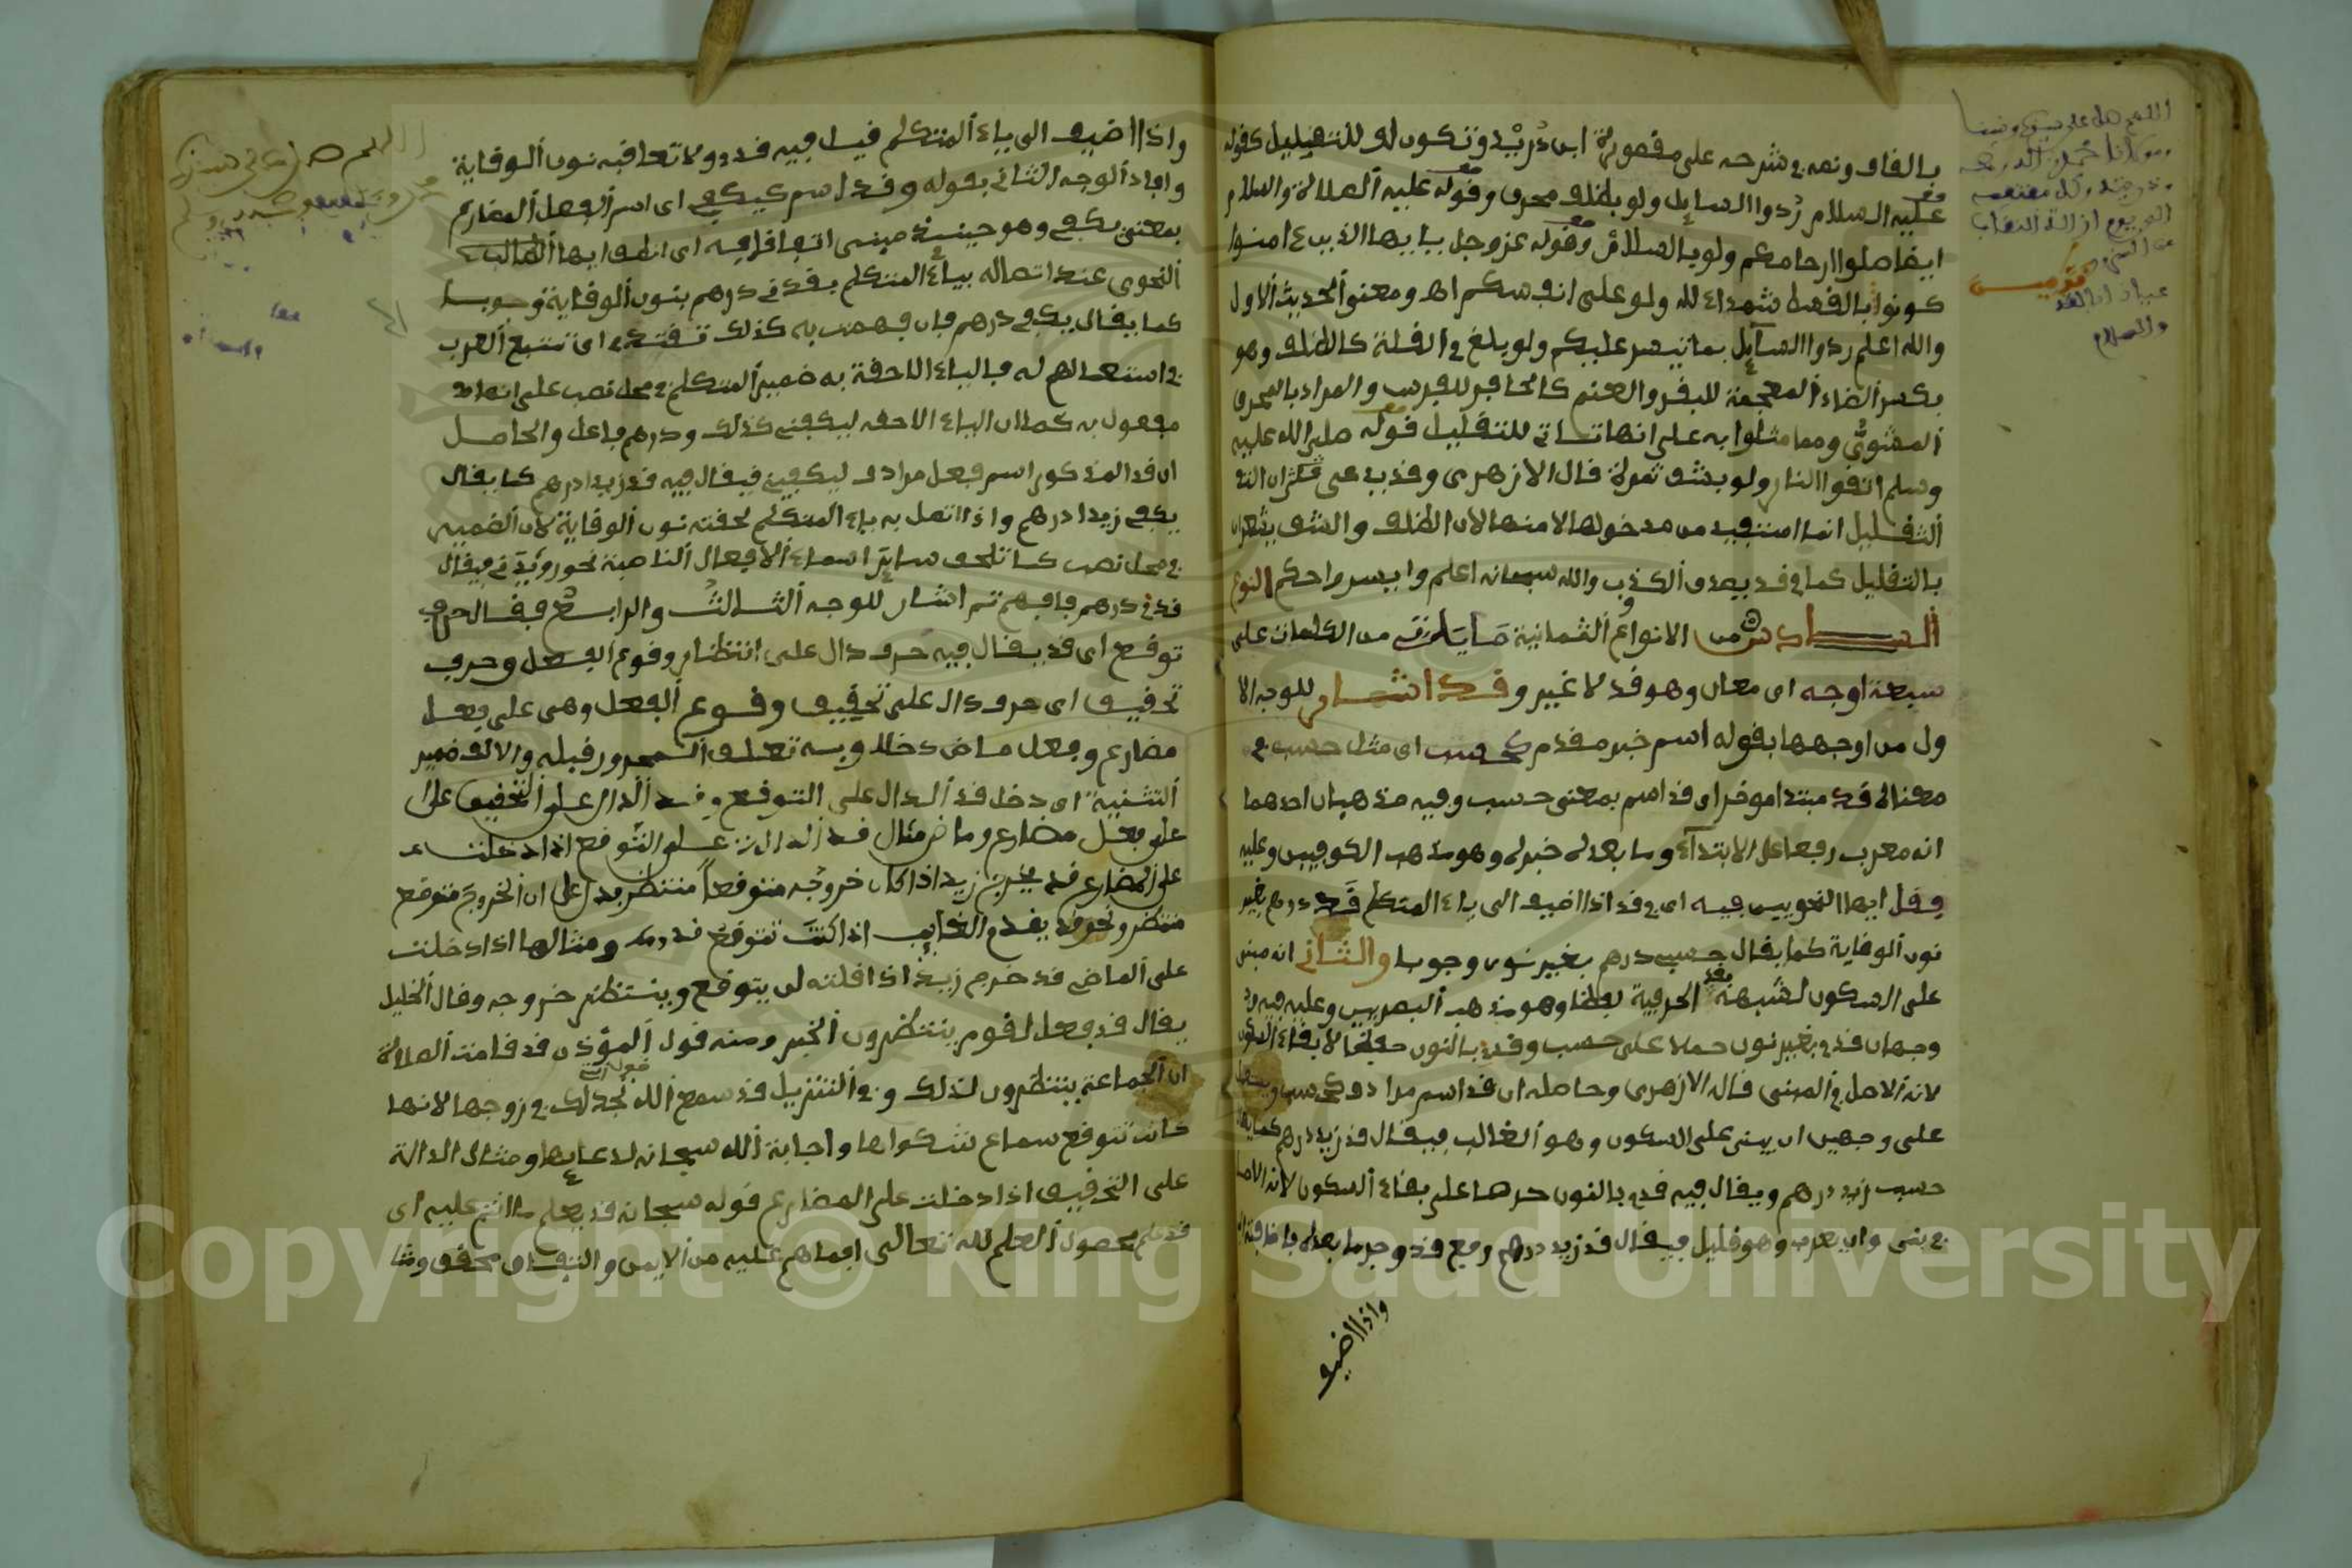 بالقاف ونصه في شرحه على مقصورة ابن دريد وتكون لو للتقليل كقوله
عليه السلام ردوا السائل ولو بظلف محرق وقوله عليه الصلاة والسلام
ايضا صلوا ارحامكم ولو بالسلام وقوله عز وجل يا ايها الذين ءامنوا
كونوا بالقسط شهداء لله ولو على انفسكم اه ومعنى الحديث الاول
والله اعلم ردوا السائل بما تيسر عليكم ولو بلغ في القلة كالظلف وهو
بكسر الظاء المعجمة للبقر والغنم كالحافر للفرس والمراد بالمحرق
المشوي ومما مثلوا به على انها تاتي للتقليل قوله صلى الله عليه
وسلم اتقوا النار ولو بشق تمرة قال الازهري وقد يدعى
التقليل انما استفيد من مدخولها لا منها لان الظلف والشق يشعران
بالتقليل كما في قد يصدق الكذوب والله سبحانه اعلم وايسر واحكم النوع
السادس من الانواع الثمانية ما ياتي من الكلمات على
سبعة اوجه اى معان وهو قد لا غير وقد اشار للوجه الا
ول من اوجهها بقوله اسم خبر مقدم كحسب اى مثل حسب في
معناه قد مبتدا موخر اى قد اسم بمعنى حسب وفيه مذهبان احدهما
انه معرب رفعا على الابتداء وما بعده خبره وهو مذهب الكوفيين وعليه
وقل ايها النحويين فيه اى في قد اذا اضيف الى ياء المتكلم قدي درهم بغير
نون الوقاية كما يقال حسبي درهم بغير نون وجوبا والثاني انه مبني
على السكون لشبهه بقد الحرفية لفظا وهو مذهب البصريين وعليه فيه
وجهان قدي بغير نون حملا على حسب وقدني بالنون حفظا لابقاء السكون
لانه الاصل في المبني قاله الازهري وحاصله ان قد اسم مرادف كحسب
على وجهين ان يبنى على السكون وهو الغالب فيقال قد زيد درهم كما يقال
حسب زيد درهم ويقال فيه قدني بالنون حرصا على بقاء السكون لانه الاصل
في بنى وان يعرب وهو قليل فيقال قد زيد درهم برفع قد وجر ما بعده باضافته
واذا اضيف
واذا اضيف الى ياء المتكلم قيل فيه قدي ولا تصاحبه نون الوقاية
وافاد الوجه الثاني بقوله وقد اسم كيكفي اى اسم الفعل المضارع
بمعنى يكفي وهو حينئذ مبني اتفاقا فيه اى انطق ايها الطالب
النحوي عند اتصاله بياء المتكلم بقدني درهم بنون الوقاية وجوبا
كما يقال يكفي درهم فان فهمت به كذلك تقتفي اى تتبع العرب
في استعمالهم له فالياء اللاحقة به ضمير المتكلم في محل نصب على انها
مفعول به كما ان الياء الاحقه ليكفيني كذلك ودرهم فاعل والحاصل
ان قد المذكور اسم فعل مرادف ليكفيني فيقال فيه قد زيدا درهم كما يقال
يكفي زيدا درهم واذا اتصل به ياء المتكلم لحقته نون الوقاية لان الضمير
في محل نصب كما تلحق سائر اسماء الافعال الناصبة نحو رويدني فيقال
قدني درهم فافهم ثم اشار للوجه الثالث والرابع فقال حرف
توقع اى قد يقال فيه حرف دال على انتظار وقوع الفعل وحرف
تحقيق اى حرف دال على تحقيق وقوع الفعل وهى على فعل
مضارع وفعل ماض دخلا وبه تعلق المجرور قبله والالف ضمير
التثنية اى دخل قد الدال على التوقع وقد الدال على التحقيق على
على فعل مضارع وماض مثال قد الدال على التوقع اذا دخلت
على المضارع قد يخرج زيد اذا كان خروجه متوقعا منتظر يدل على ان الخروج متوقع
منتظر ونحو قد يقدم الغائب اذا كنت تتوقع قدومه ومثالها اذا دخلت
على الماضي قد خرج زيد اذا قلته لمن يتوقع وينتظر خروجه وقال الخليل
يقال قد فعل لقوم ينتظرون الخبر ومنه قول المؤذن قد قامت الصلاة
ان الجماعة ينتظرون لذلك وفي التنزيل قد سمع الله قول التي تجدلك في زوجها لانها
كانت تتوقع سماع شكواها واجابة الله سبحانه لدعائها ومثال الدالة
على التحقيق اذا دخلت على المضارع قوله سبحانه قد يعلم ما انتم عليه اى
قد علم بحصول العلم لله تعالى فيما هم عليه من الايمن والنفاق محقق ومثا
Copyright © King Saud University